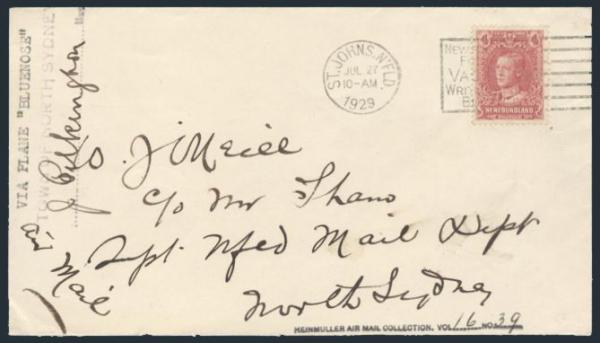 VIA PLANE "BLUENOSE"
TOWN OF NORTH SYDNEY
J Pilkington
Air Mail
ST. JOHNS. N'FLD.
JUL 27
10-AM
1929
NEWFOUNDLAND
J O'Neill
c/o Mr Shano
Supt Nfld Mail Dept
North Sydney
HEINMULLER AIR MAIL COLLECTION, VOL 16 NO. 39